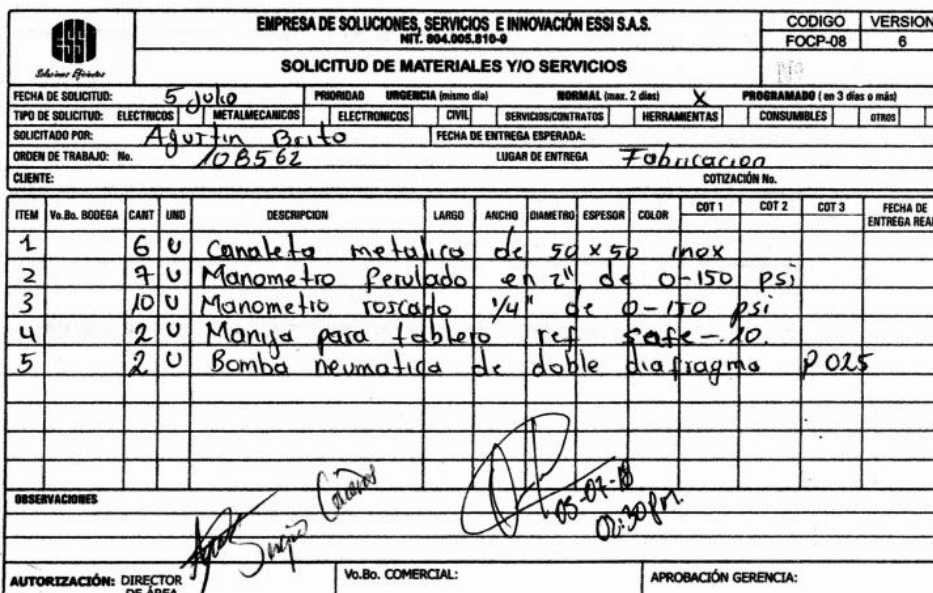 EMPRESA DE SOLUCIONES, SERVICIOS E INNOVACIÓN ESSI S.A.S.
NIT. 804.005.810-9
CODIGO VERSION
FOCP-08 6
ESSI
Soluciones Eficientes
SOLICITUD DE MATERIALES Y/O SERVICIOS
Nº
FECHA DE SOLICITUD: 5 Julio PRIORIDAD URGENCIA (mismo día) NORMAL (max. 2 dias) X PROGRAMADO ( en 3 días o más)
TIPO DE SOLICITUD: ELECTRICOS METALMECANICOS ELECTRONICOS CIVIL SERVICIOS/CONTRATOS HERRAMIENTAS CONSUMIBLES OTROS
SOLICITADO POR: Agustin Brito FECHA DE ENTREGA ESPERADA:
ORDEN DE TRABAJO: No. 108562 LUGAR DE ENTREGA Fabricacion
CLIENTE: COTIZACIÓN No.
ITEM Vo.Bo. BODEGA CANT UND DESCRIPCION LARGO ANCHO DIAMETRO ESPESOR COLOR COT 1 COT 2 COT 3 FECHA DE ENTREGA REAL
1 6 U Canaleta metalica de 50 x 50 inox
2 7 U Manometro ferulado en 2" de 0-150 psi
3 10 U Manometro roscado 1/4" de 0-150 psi
4 2 U Manija para tablero ref safe-20.
5 2 U Bomba neumatica de doble diafragma P 025
OBSERVACIONES
Sergio
05-07-18
02:30 pm.
AUTORIZACIÓN: DIRECTOR DE ÁREA Vo.Bo. COMERCIAL: APROBACIÓN GERENCIA: